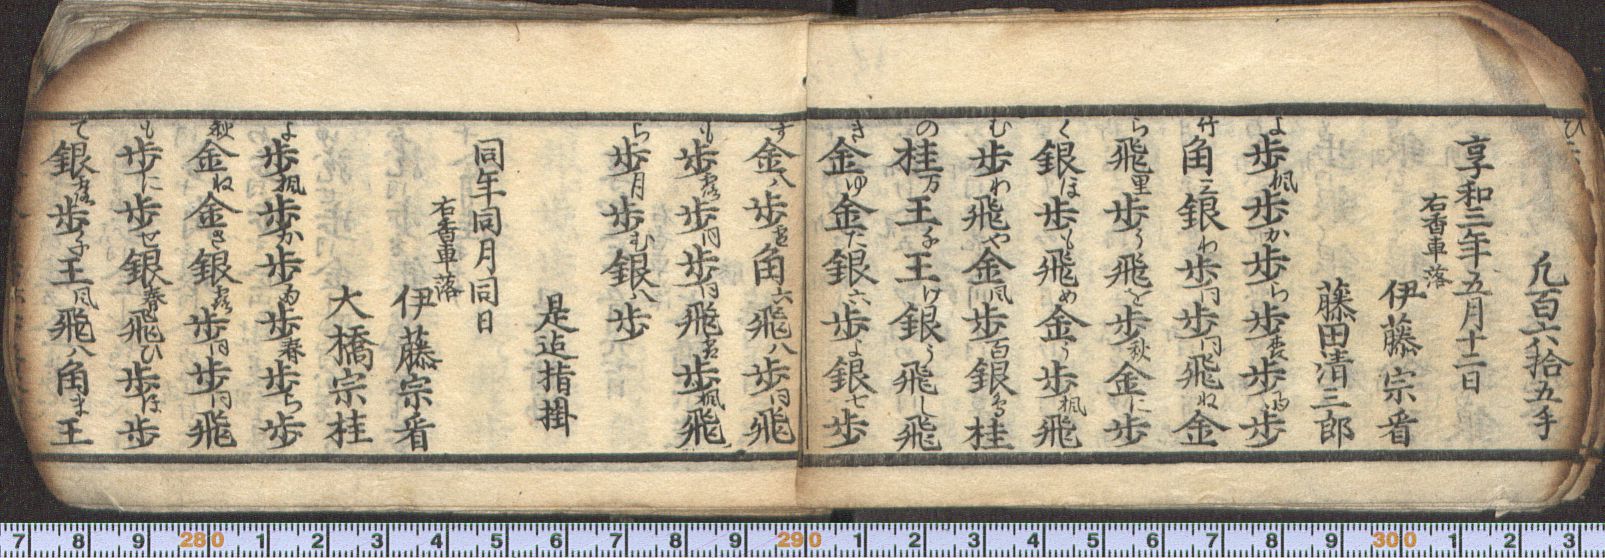 凡百六拾五手
享和三年五月十二日
右香車落
伊藤宗看
藤田清三郎
よ歩楓歩か歩ら歩春歩雨歩
竹角る銀わ歩同歩同飛ね金
ら飛里歩う飛と歩秋金に歩
く銀ほ歩も飛め金う歩楓飛
む歩わ飛や金風歩百銀ゐ桂
の桂万王ふ王け銀う飛し飛
き金ゆ金た銀六歩よ銀七歩
す金八歩圭角六飛八歩同飛
も歩露歩同歩同飛圭歩楓飛
ら歩月歩む銀八歩
是迄指掛
同年同月同日
右香車落
伊藤宗看
大橋宗桂
よ歩楓歩か歩雨歩春歩ら歩
秋金ね金き銀露歩同歩同飛
も歩に歩せ銀春飛ひ歩ほ歩
て銀露歩ふ王風飛八角ま王
7 8 9 280 1 2 3 4 5 6 7 8 9 290 1 2 3 4 5 6 7 8 9 300 1 2 3